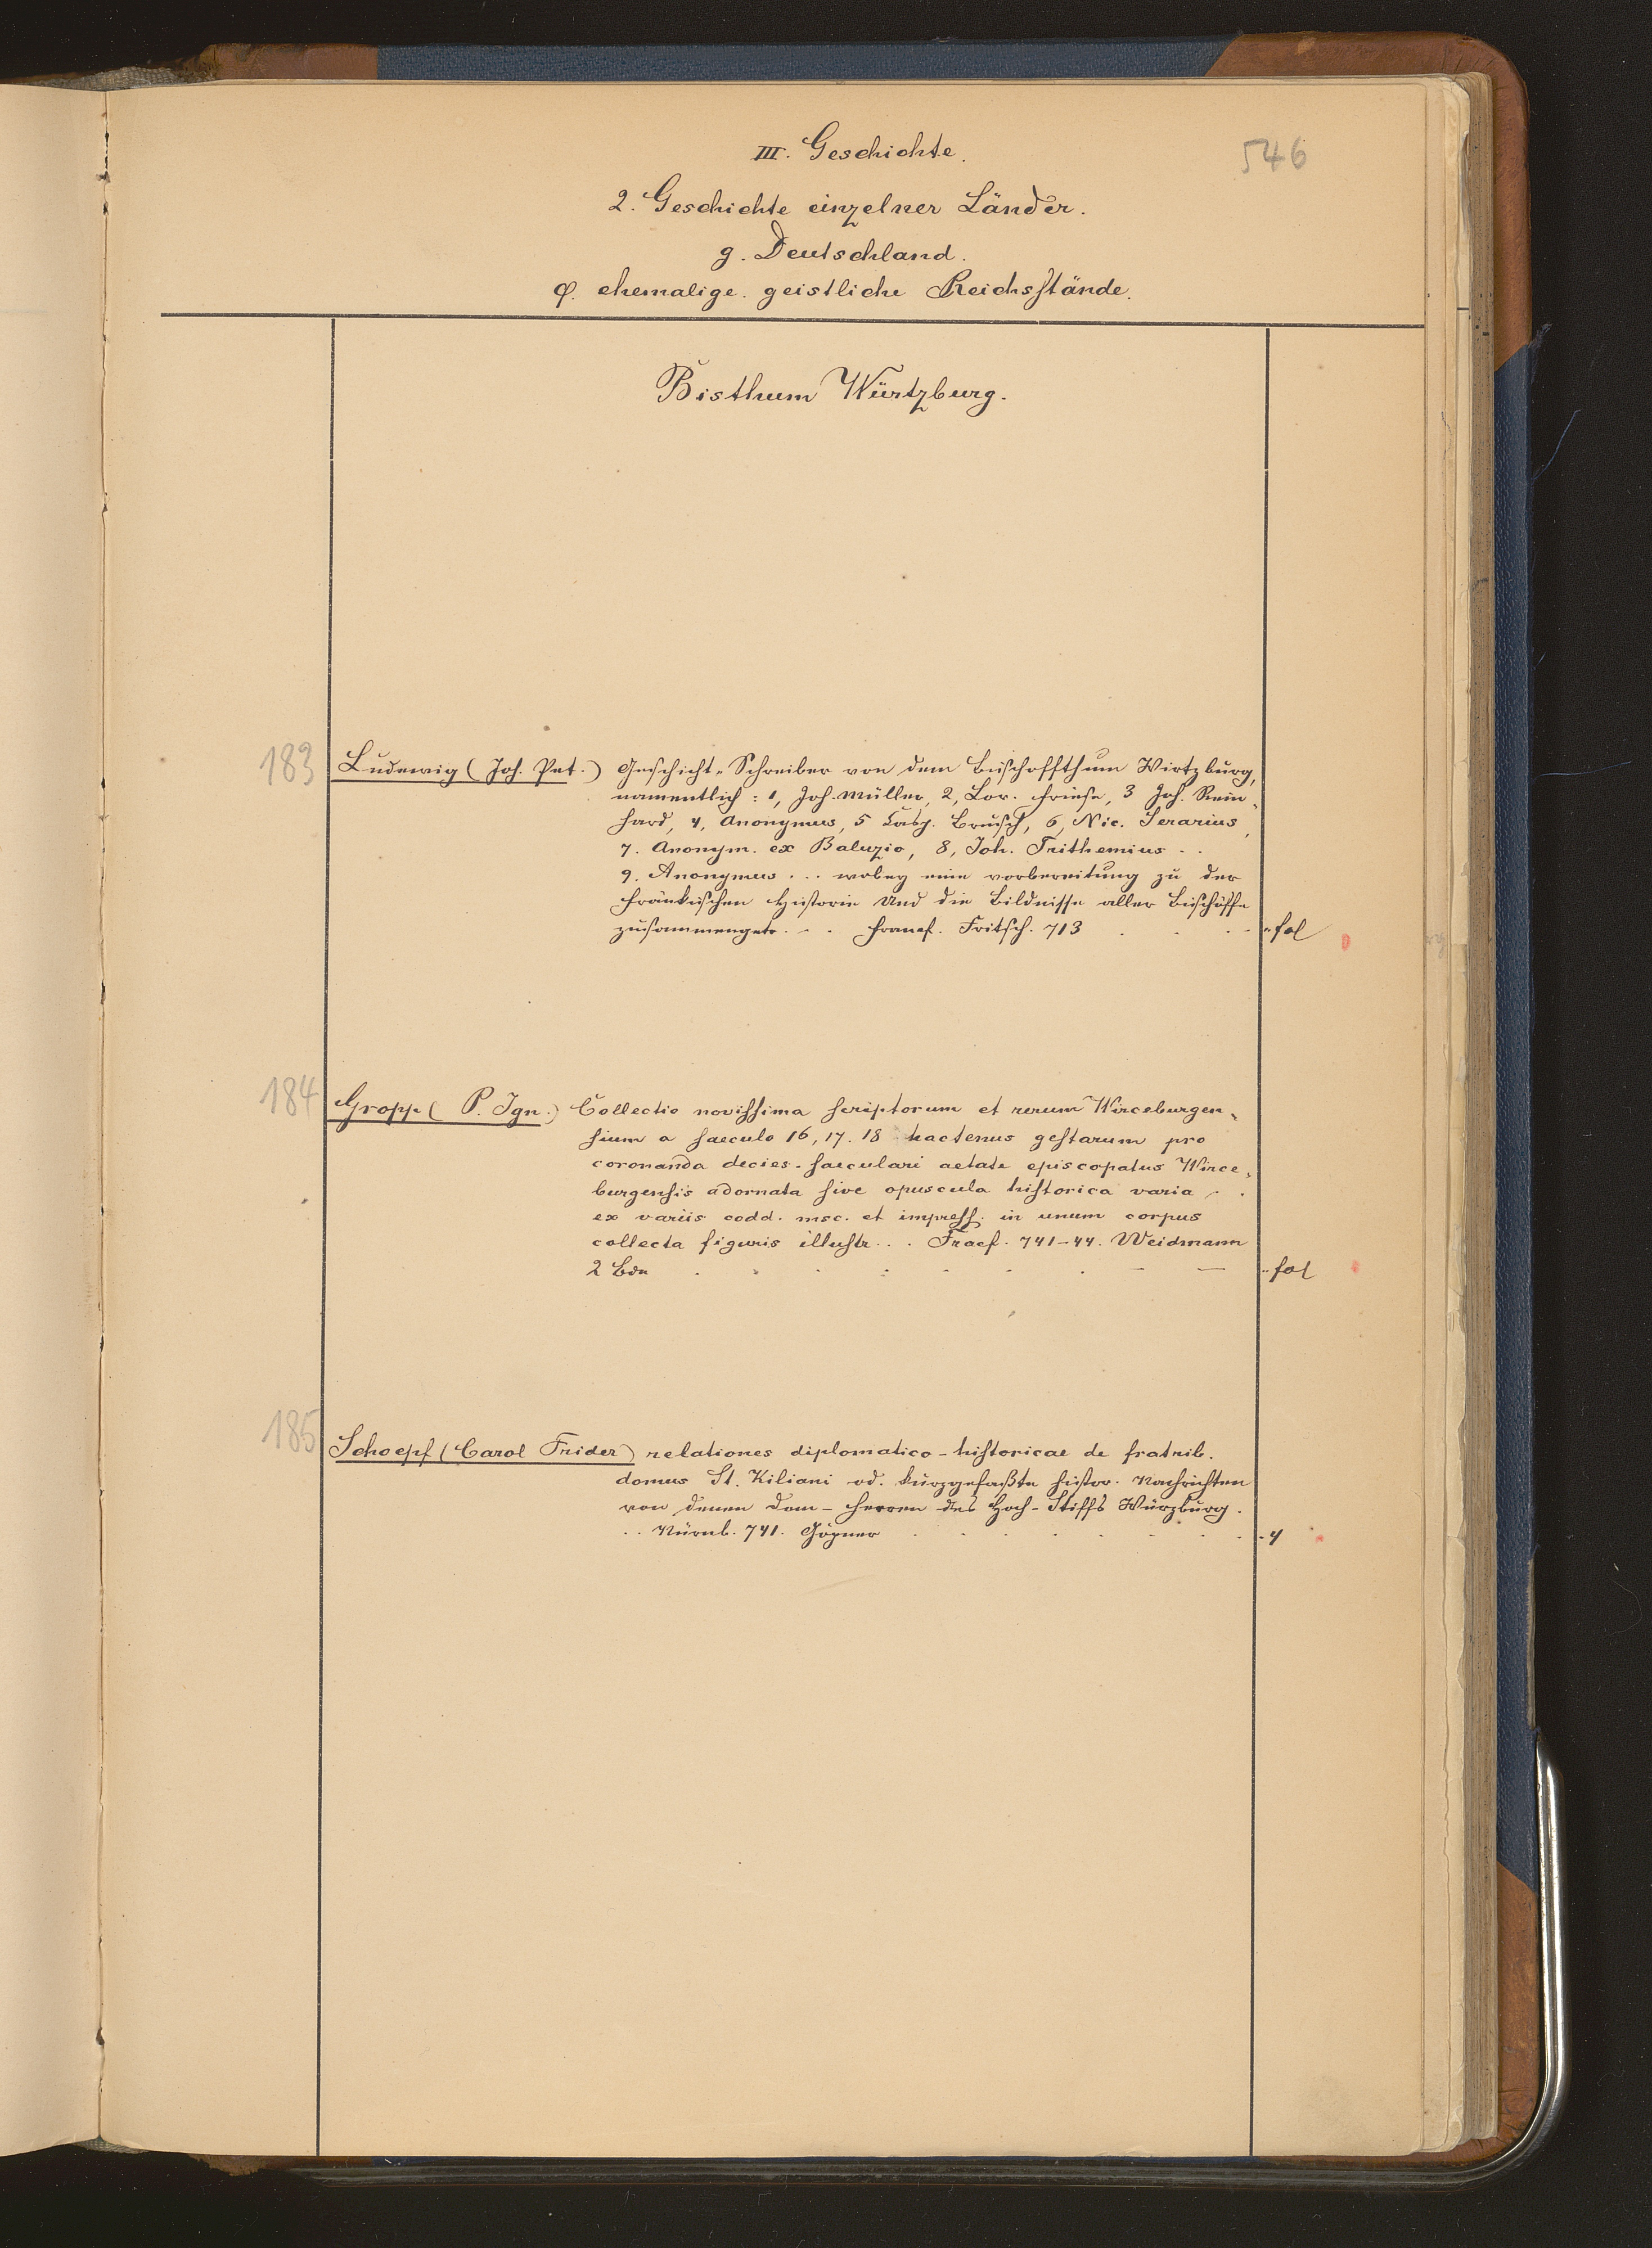 546
III. Geschichte.
2. Geschichte einzelner Länder.
g. Deutschland.
φ. ehemalige geistliche Reichsstände.
Bisthum Würtzburg.
183 Ludewig (Joh. Pet.) Geschicht-Schreiber von dem Bischoffthum Wirtzburg,
namentlich: 1, Joh. Müller, 2, Lor. Friese, 3 Joh. Rein-
hard, 4, Anonymus, 5 Casp. Brusch, 6, Nic. Serarius,
7. Anonym. ex Baluzio, 8, Joh. Trithemius . .
9. Anonymus . . . wobey eine vorbereitung zu der
Fränkischen Historie und die Bildnisse aller Bischöffe
zusammengetr. . . Francf. Fritsch. 713 . . . . fol
184 Gropp (P. Ign.) Collectio novissima scriptorum et rerum Wirceburgen-
sium a saeculo 16, 17. 18 hactenus gestarum pro
coronanda decies-saeculari aetate episcopatus Wirce-
burgensis adornata sive opuscula historica varia . .
ex variis codd. msc. et impress. in unum corpus
collecta figuris illustr. . . Fracf. 741-44. Weidmann
2 Bde . . . . . . . - - fol
185 Schoepf (Carol Frider) relationes diplomatico-historicae de fratrib.
domus St. Kiliani od. kurzgefaßte histor. Nachrichten
von denen Dom-Herren des Hoch-Stiffs Würzburg.
. . Nürnb. 741. . . . . . . . 4